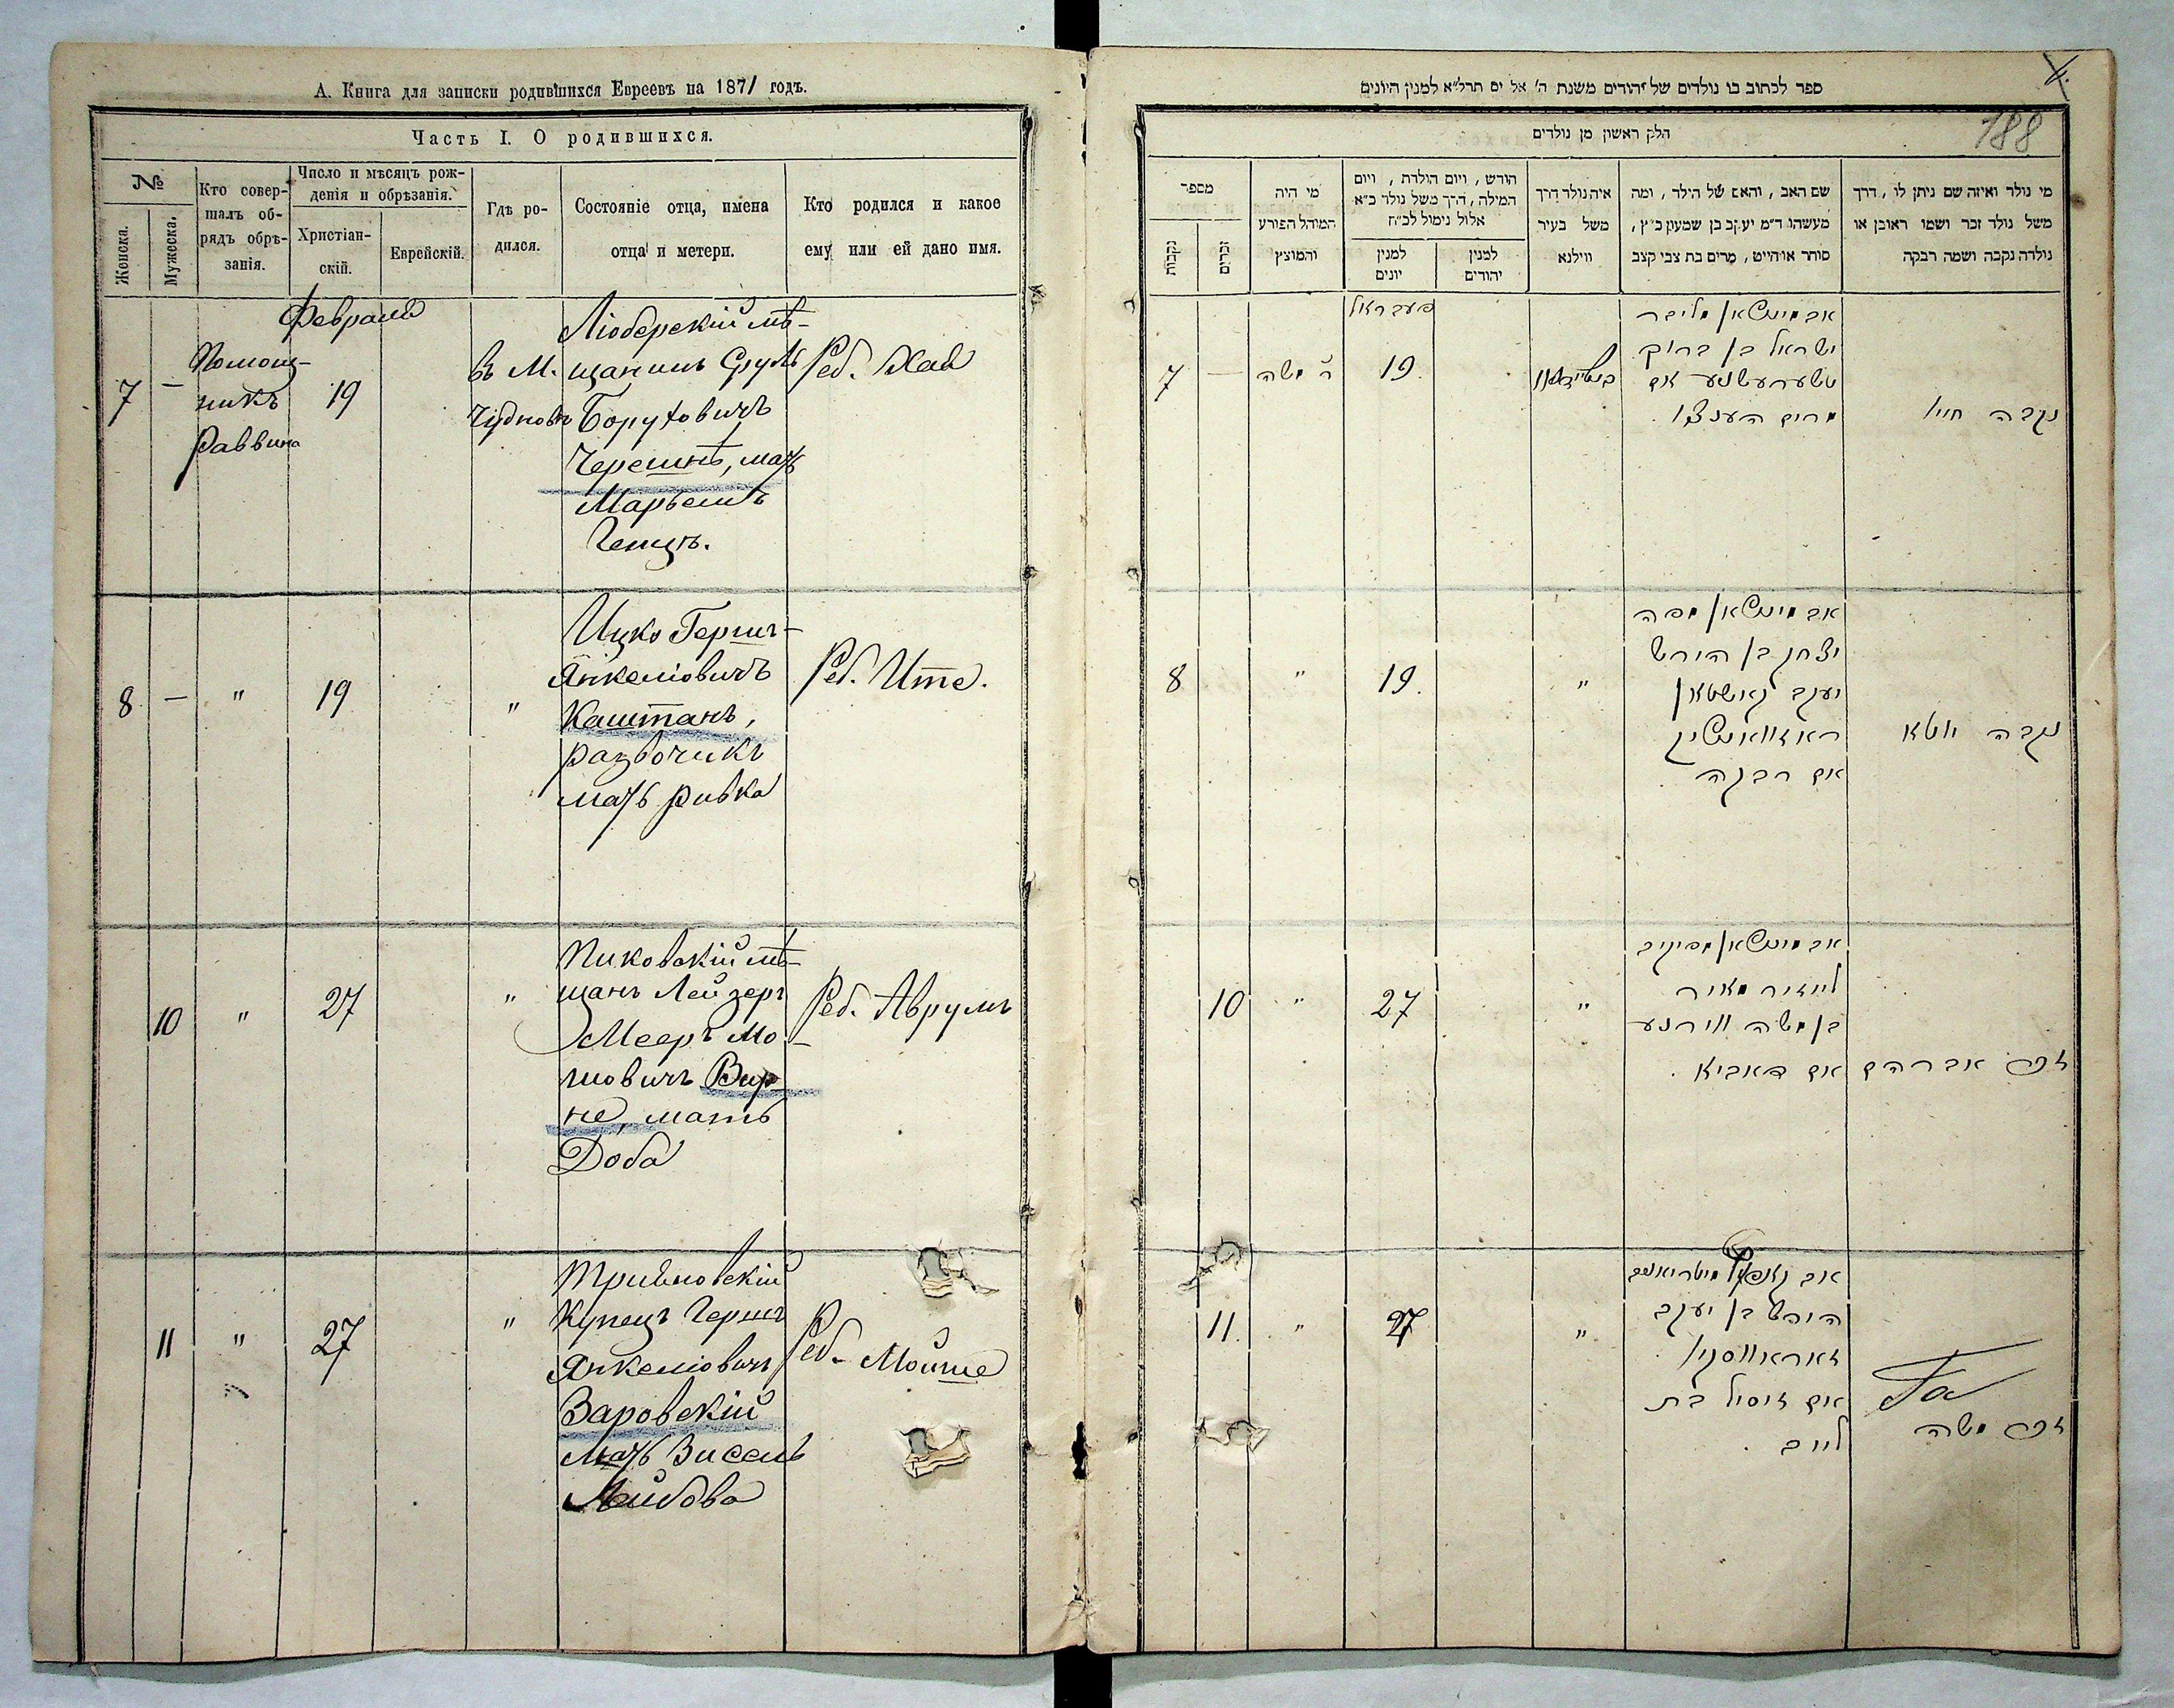 А. Книга для записки родившихся Евреевъ на 1871 годъ.
Часть I. О родившихся.
№
Женска.
Мужеска.
Кто совер-
шалъ об-
рядъ обрѣ-
занія.
Число и мѣсяцъ рож-
денія и обрѣзанія.
Христіан-
скій.
Еврейскій.
Гдѣ ро-
дился.
Состояніе отца, имена
отца и метери.
Кто родился и какое
ему или ей дано имя.
Февраля
7
—
Помощ-
никъ
Раввина
19
въ М.
Чудновъ
Люберскій мѣ-
щанинъ Сруль
Боруховичъ
Черешнѣ, мать
Марьемъ
Генцъ.
Реб. Хая
8
—
"
19
"
Ицко Герш-
Янкелiовичъ
Каштанъ,
развочикъ
мать Ривка
Реб. Ите.
10
"
27
"
Пиковскій мѣ-
щанъ Лейзеръ
Мееръ Мо-
шовичъ Вир
не, мать
Доба
Реб. Аврумъ
11
"
27
"
Купецъ Гершъ
Янкелiовичъ
Заровскій
мать Зисель
Лейбова
Реб. Мойше
ספר לכתוב בו נולדים של יהודים משנת ה' אל ים תרל״א למנין היונים
188
חלק ראשון מן נולדים
מספר
נקבות
זכרים
מי היה
המוהל הפורע
והמוצץ
חודש, ויום הולדת, ויום
המילה, דרך משל נולד כ״א
אלול נימול לכ״ח
למנין
יונים
למנין
יהודים
איה נולד דרך
משל בעיר
ווילנא
שם האב, והאם של הילד, ומה
מעשהו ד״מ יעקב בן שמעון כ״ץ,
סוחר או חייט, מרים בת צבי קצב
מי נולד ואיזה שם ניתן לו, דרך
משל נולד זכר ושמו ראובן או
נולדה נקבה ושמה רבקה
פעבראל
7
—
ר משה
19
ישראל בן ברוך
טשערעשניע אם
מרים הענצי
נקבה חייא
8
"
19.
"
יצחק בן הירש
יעקב קאשטאן
אם רבקה
נקבה יוטא
10
"
27
"
לייזיר מאיר
בן משה ווירנע
אם דאביא
זכר אברהם
11.
"
27
"
הירש בן יעקב
זאראווסקי
אם זיסיל בת
לייב
זכר משה